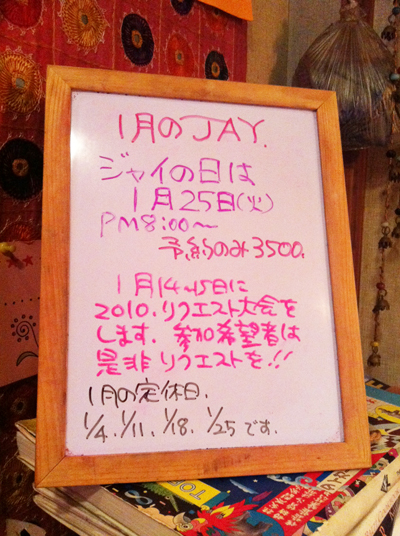 1月のJAY.
ジャイの日は
1月25日(火)
PM8:00〜
予約のみ3500.
1月14.15日に
2010.リクエスト大会を
します.参加希望者は
是非リクエストを!!
1月の定休日.
1/4.1/11.1/18.1/25です.